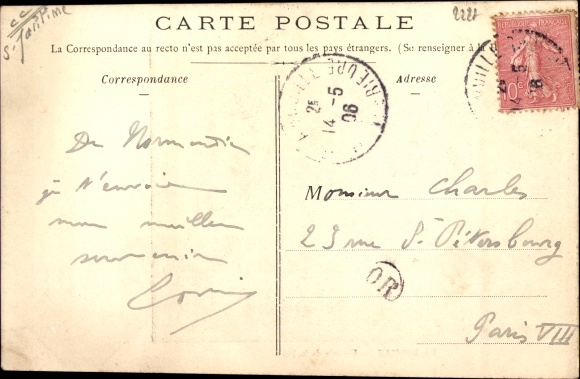 CARTE POSTALE
La Correspondance au recto n'est pas acceptée par tous les pays étrangers. (Se renseigner à la
Correspondance
Adresse
2E
14 -5
06
REPUBLIQUE FRANÇAISE
10c
De Normandie
je t'envoie
mon meilleur
souvenir
Monsieur Charles
23 rue St Pétersbourg
OR
Paris VIII